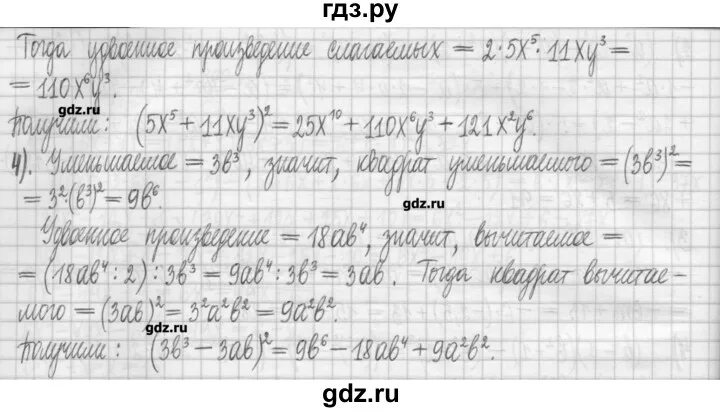 гдз.ру
Тогда удвоенное произведение слагаемых = 2·5x⁵·11xy³=
= 110x⁶y³.
gdz.ru
Получили: (5x⁵+11xy³)²=25x¹⁰+110x⁶y³+121x²y⁶.
4). Уменьшаемое = 3b³, значит, квадрат уменьшаемого = (3b³)²=
gdz.ru
= 3²·(b³)²=9b⁶.
Удвоенное произведение = 18ab⁴, значит, вычитаемое =
= (18ab⁴:2):3b³=9ab⁴:3b³=3ab. Тогда квадрат вычитае-
мого = (3ab)²=3²a²b²=9a²b².
gdz.ru
Получили: (3b³-3ab)²=9b⁶-18ab⁴+9a²b².
gdz.ru